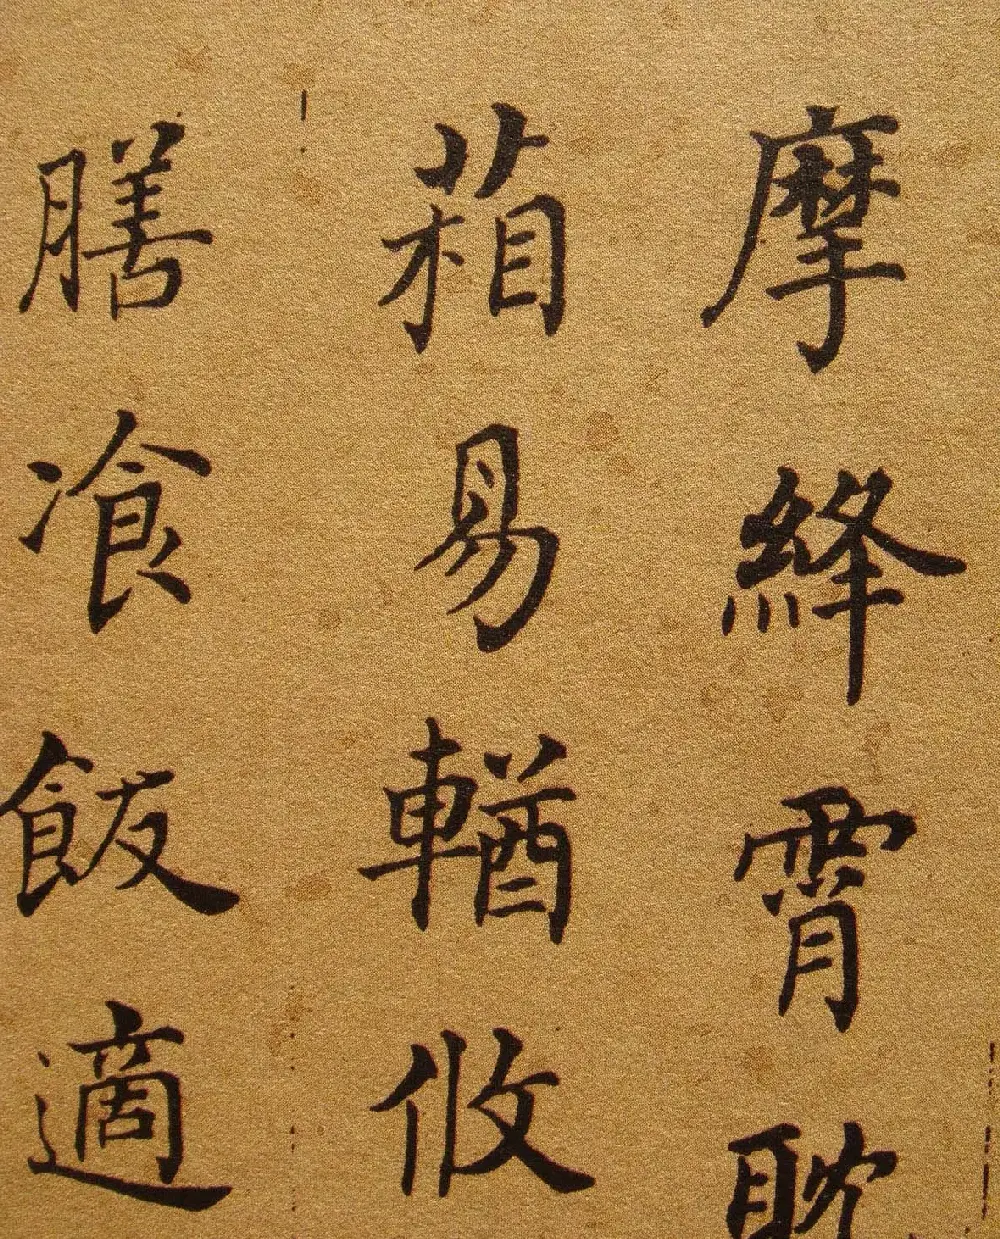 摩絳霄耽
葙易輶攸
膳飡飯適